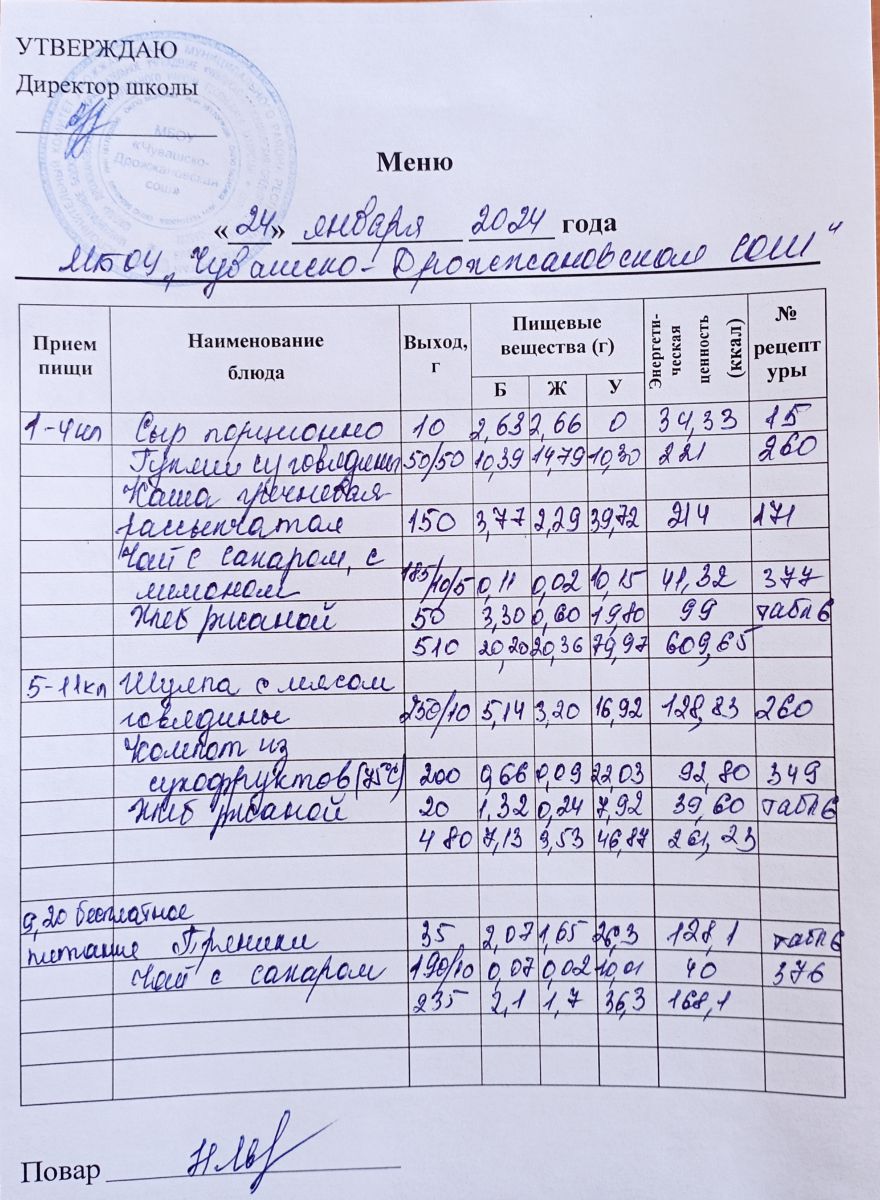 УТВЕРЖДАЮ
Директор школы
МБОУ
«Чувашско-
Дрожжановская
сош»
Меню
«24» января 2024 года
МБОУ „Чувашско-Дрожжановском СОШ"
Прием пищи Наименование блюда Выход, г Пищевые вещества (г) Б Ж У Энергети-ческая ценность (ккал) № рецептуры
1-4кл Сыр порционно 10 2,63 2,66 0 34,33 15
Гуляш из говядины 50/50 10,39 14,79 10,30 221 260
Каша гречневая
рассыпчатая 150 3,77 2,29 39,72 214 171
Чай с сахаром, с
лимоном 185/10/5 0,11 0,02 10,15 41,32 377
Хлеб ржаной 50 3,30 0,60 19,80 99 табл 6
510 20,20 20,36 79,97 609,65
5-11кл Шулпа с мясом
говядины 250/10 5,14 3,20 16,92 128,83 260
Компот из
сухофруктов (75°C) 200 0,66 0,09 22,03 92,80 349
Хлеб ржаной 20 1,32 0,24 7,92 39,60 табл 6
480 7,13 3,53 46,87 261,23
9,20 бесплатное
питание Пряники 35 2,07 1,65 26,3 128,1 табл 6
Чай с сахаром 190/10 0,07 0,02 10,01 40 376
235 2,1 1,7 36,3 168,1
Повар